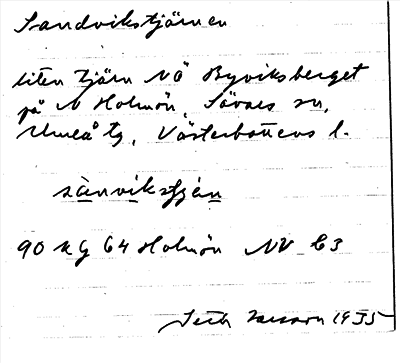 Sandvikstjärnen
liten tjärn NÖ Byviksberget
på N Holmön, Sävars sn,
Umeå tg, Västerbottens l.
sànvikstjän
90 kg 64 Holmön NV C3
1955